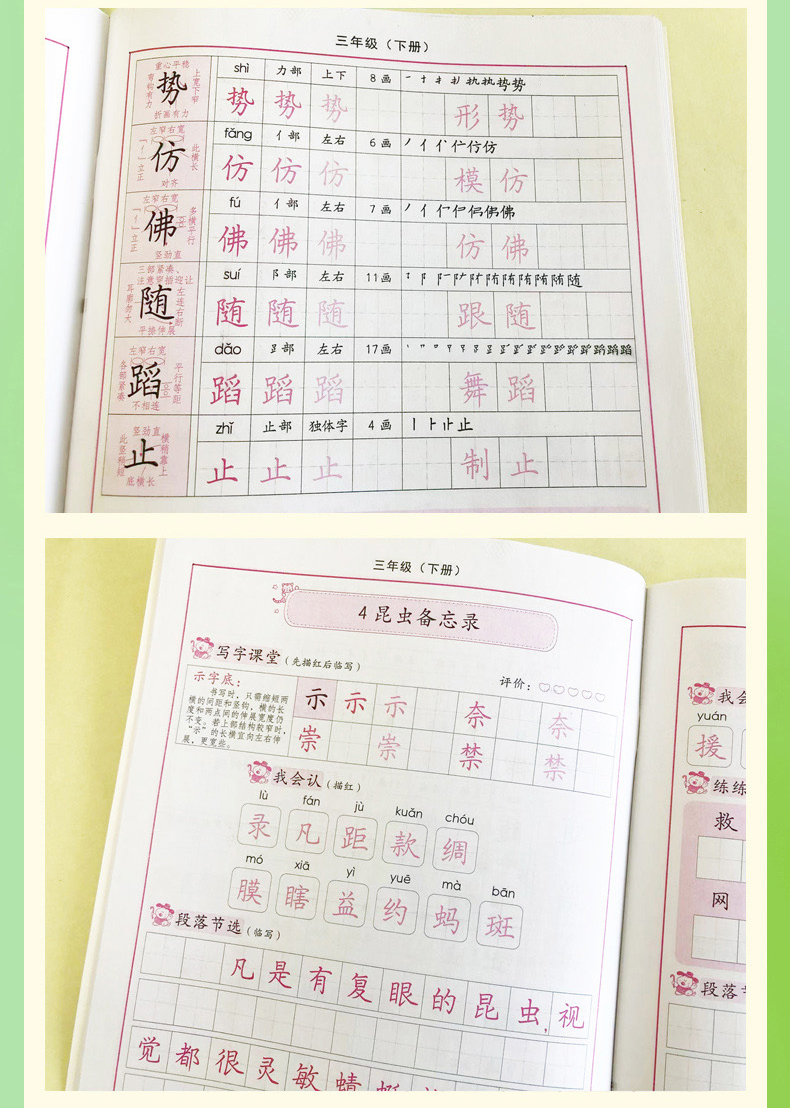 三年级（下册）
重心平稳
弯钩有力
上宽下窄
势
折画有力
shì 力部 上下 8画
势 势 势 形 势
左窄右宽
「亻」立正
此横长
仿
对齐
fǎng 亻部 左右 6画
仿 仿 仿 模 仿
左窄右宽
「亻」立正
多横平行
佛
竖劲直
fú 亻部 左右 7画
佛 佛 佛 仿 佛
三部紧凑、
注意穿插迎让
耳廓勿大
左连右断
随
平捺伸展
suí 阝部 左右 11画
随 随 随 跟 随
左窄右宽
各部紧凑
平行等距
蹈
不相连
dǎo 左右 17画
蹈 蹈 蹈 舞 蹈
竖劲直
此竖稍短
横稍靠上
止
底横长
zhǐ 止部 独体字 4画
止 止 止 制 止
三年级（下册）
4 昆虫备忘录
写字课堂（先描红后临写）
评价：
示字底：
书写时，只需缩短两
横的间距和竖钩，横的长
度和两点间的伸展宽度仍
不变。若上部结构较窄时，
“示”的长横宜向左右伸
展，更宽些。
示 示 示 奈 奈
崇 崇 禁 禁
我会认（描红）
lù fán jù kuǎn chóu
录 凡 距 款 绸
mó xiā yì yuē mà bān
膜 瞎 益 约 蚂 斑
段落节选（临写）
凡是有复眼的昆虫，视
觉都很灵敏蜻蜓
我会
yuán
援
练练
救
网
段落节